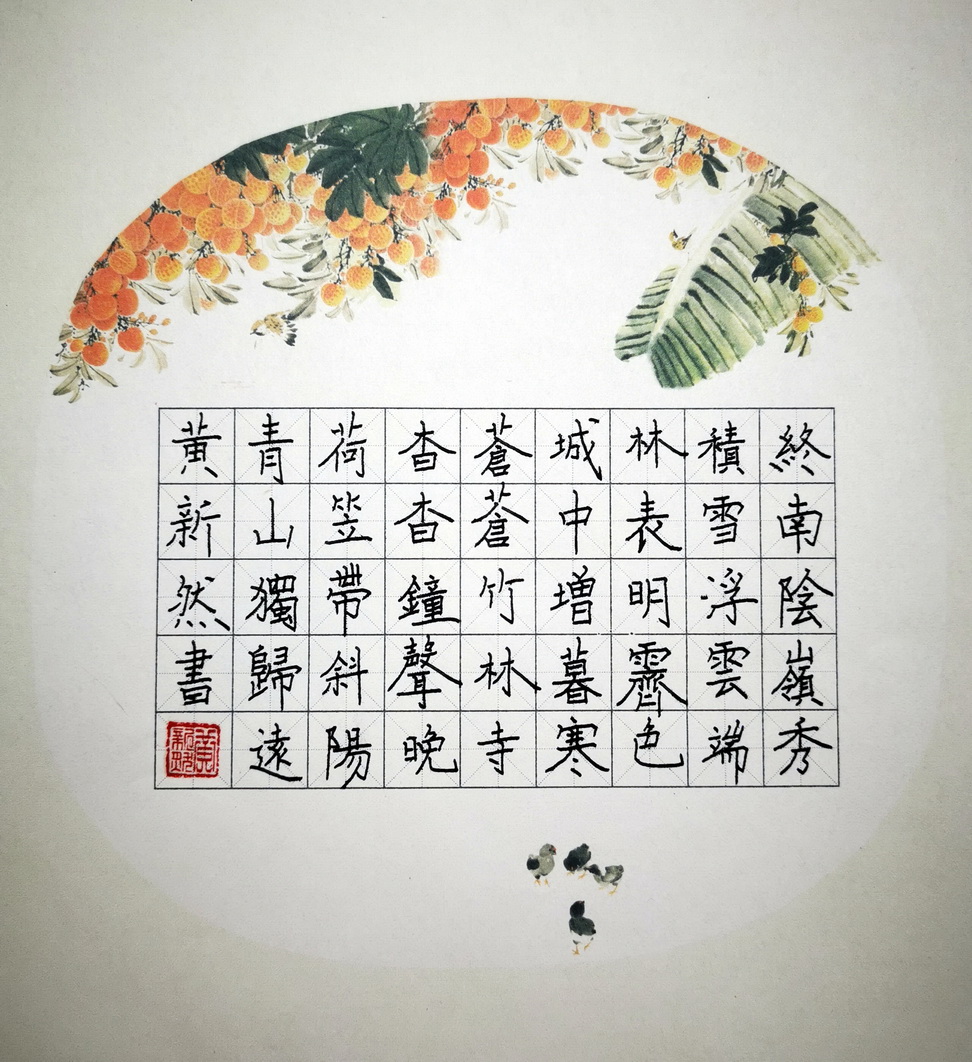 終南陰嶺秀
積雪浮雲端
林表明霽色
城中增暮寒
蒼蒼竹林寺
杳杳鐘聲晚
荷笠帶斜陽
青山獨歸遠
黃新然書